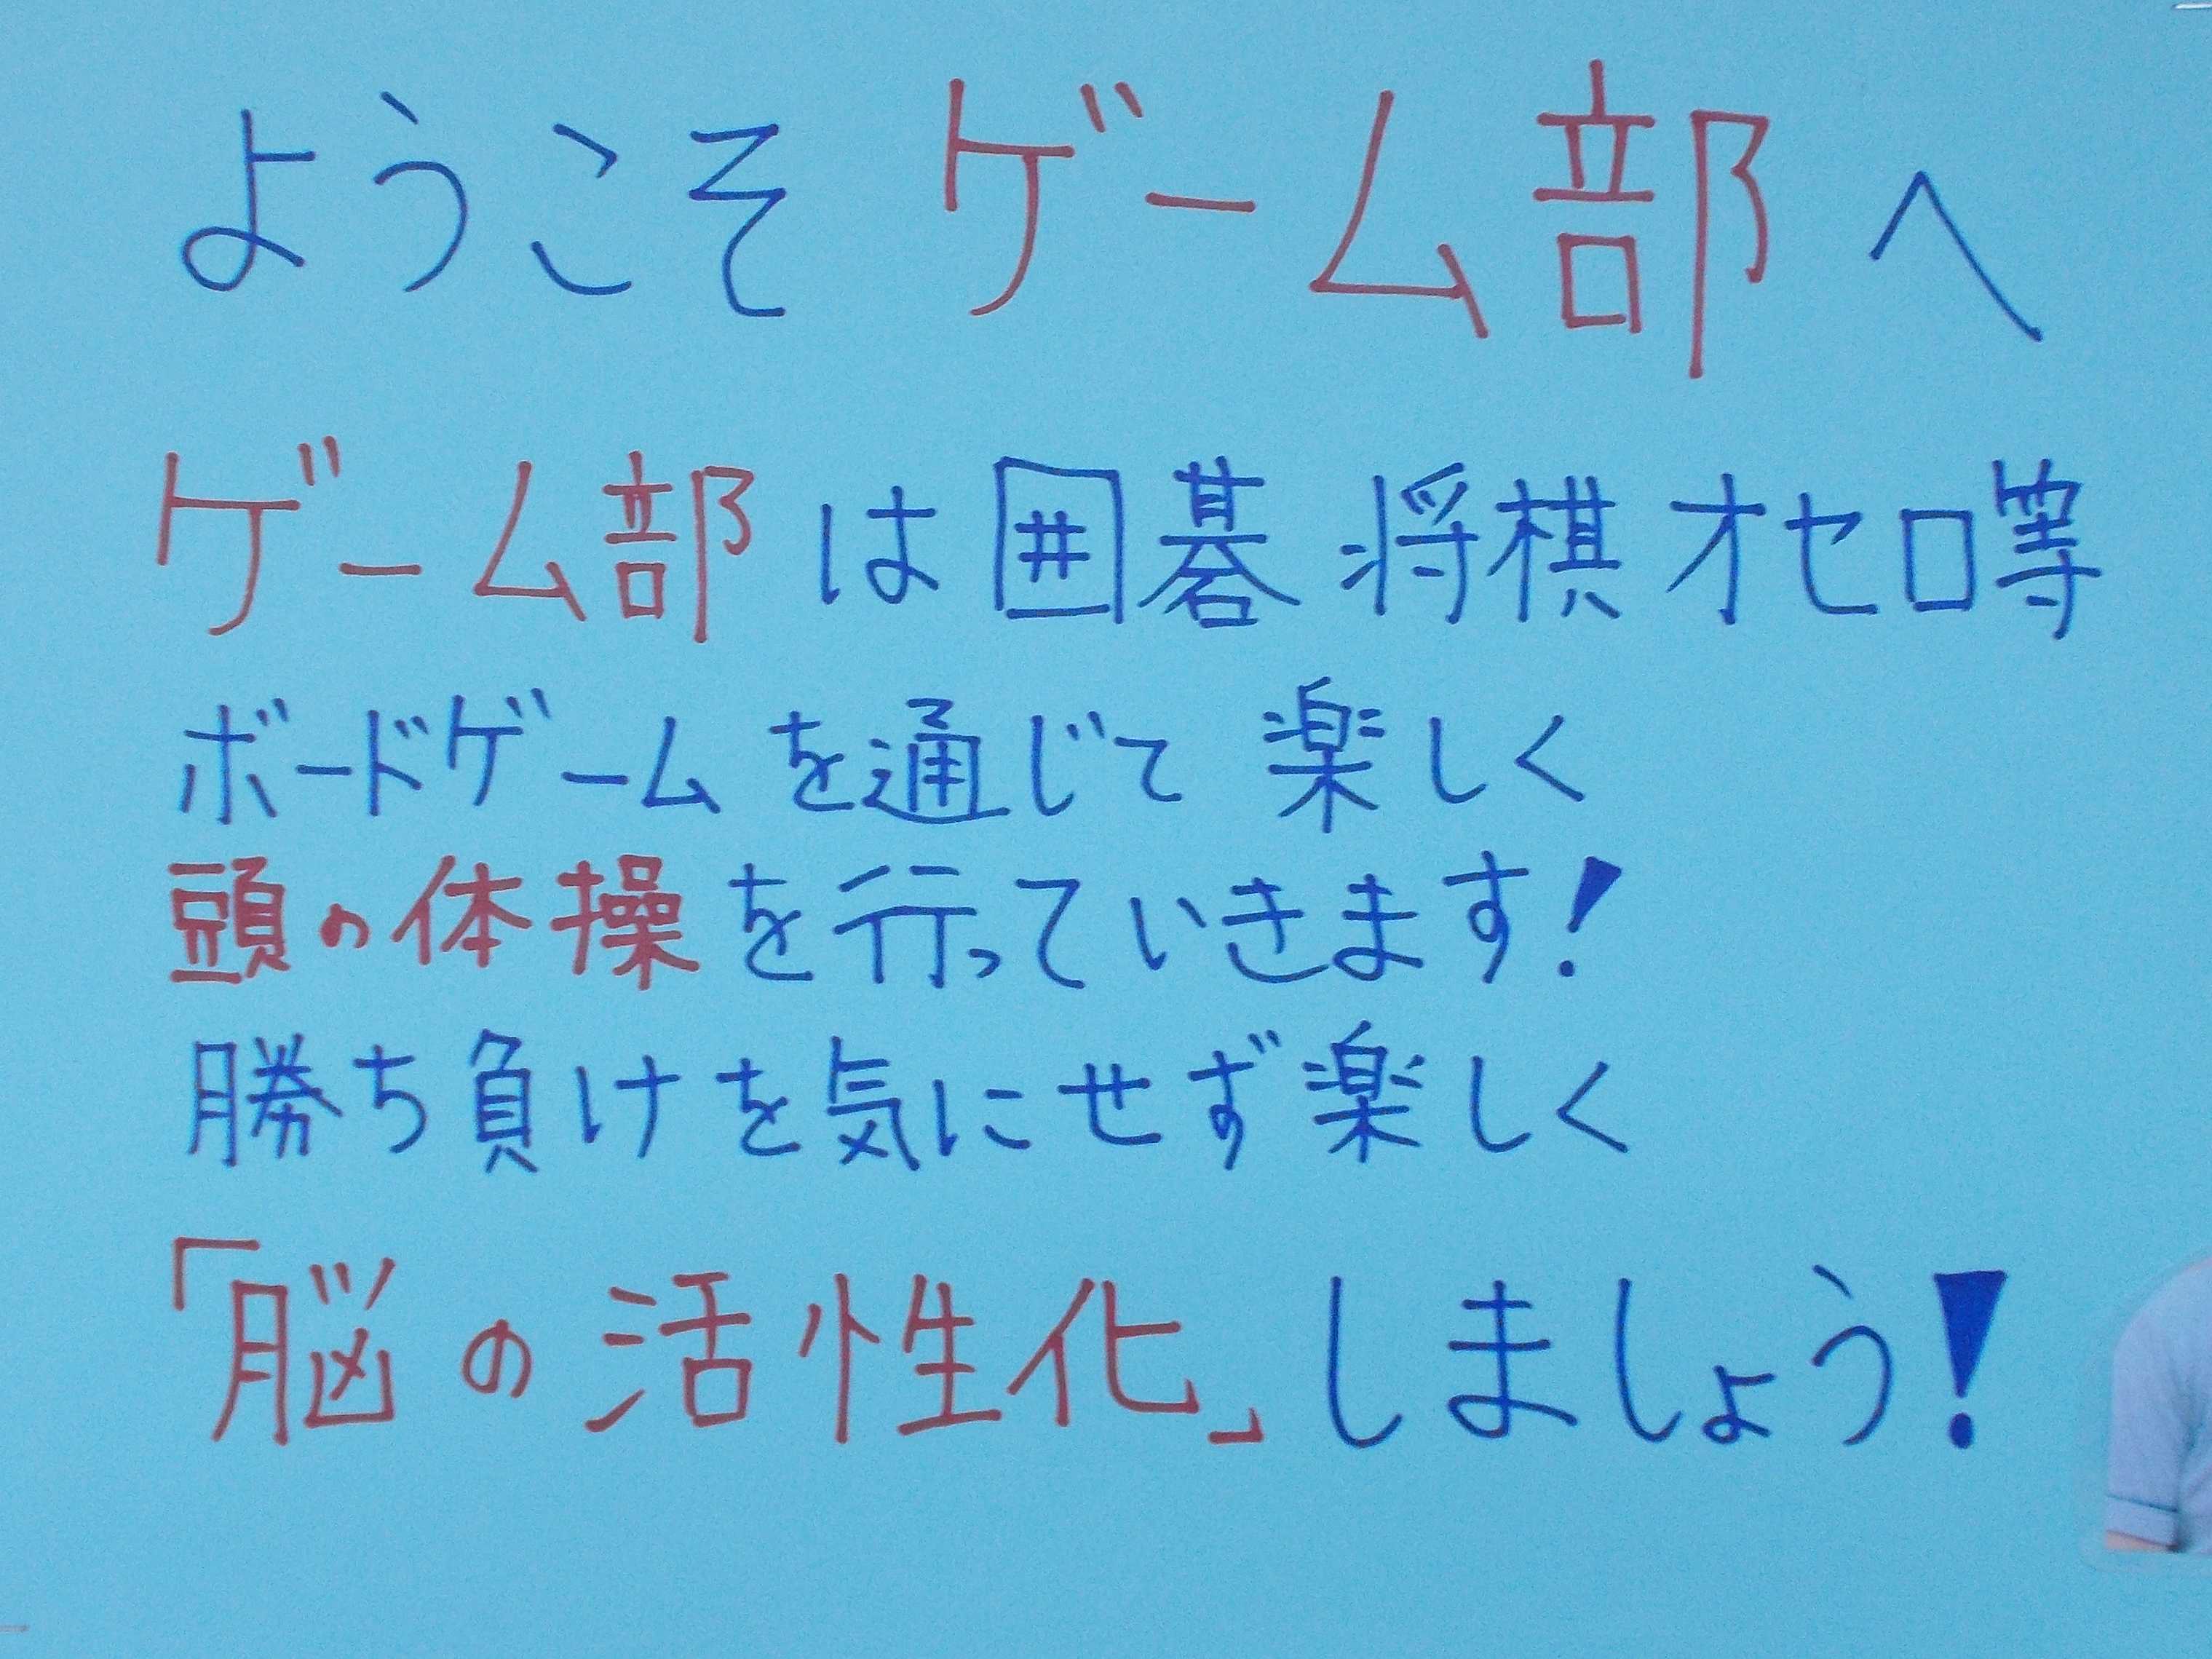 ようこそ ゲーム部へ
ゲーム部は囲碁 将棋 オセロ等
ボードゲームを通じて 楽しく
頭の体操を行っていきます!
勝ち負けを気にせず楽しく
「脳の活性化」しましょう!